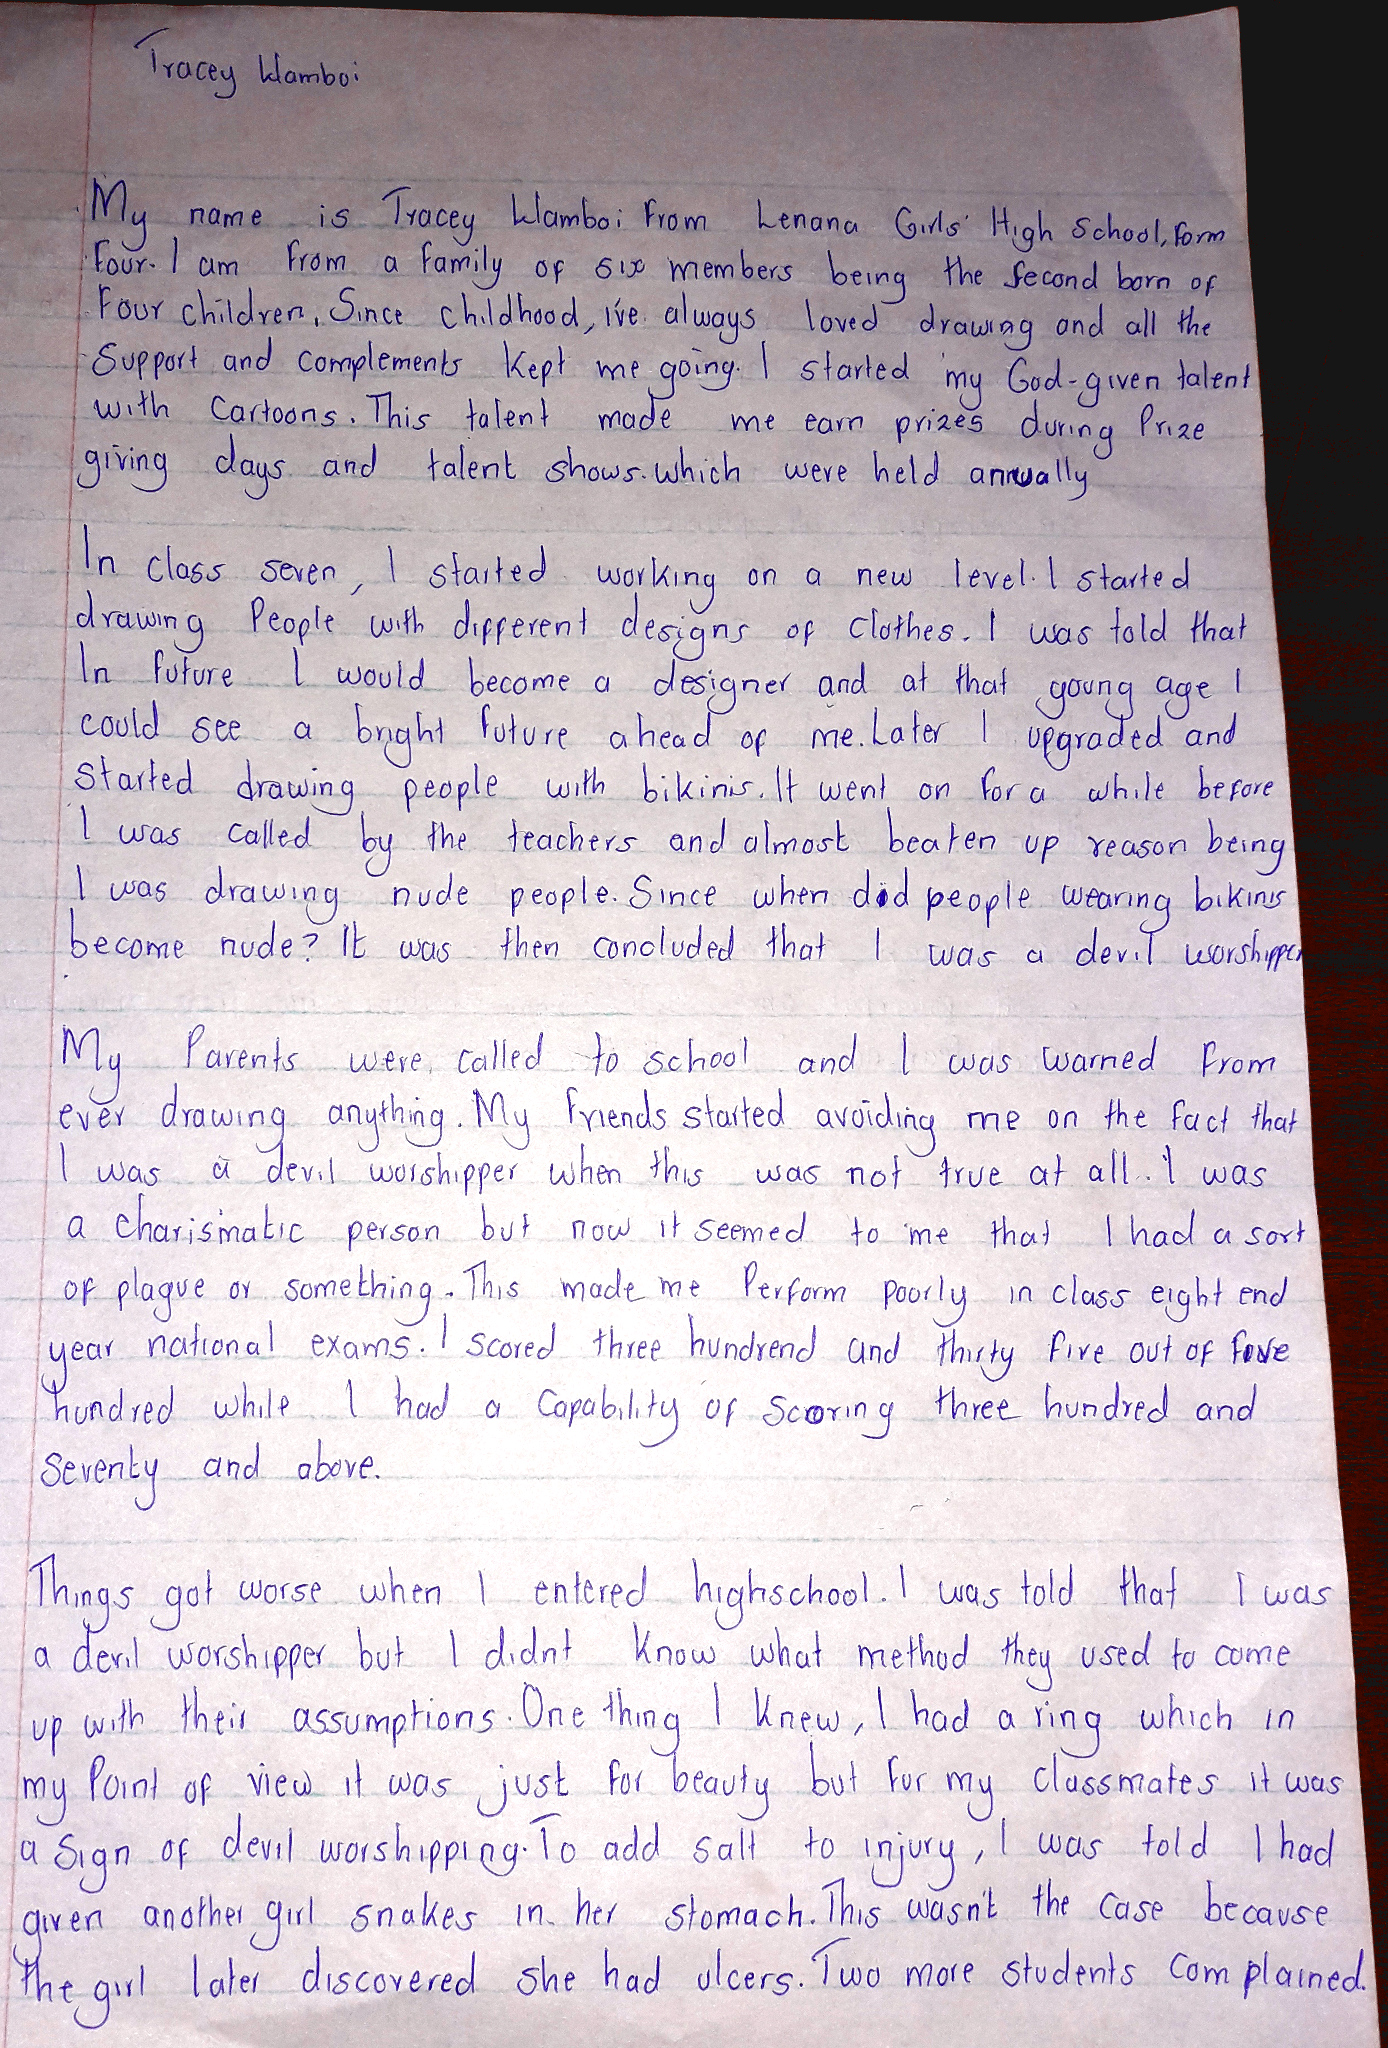 Tracey Wamboi
My name is Tracey Wamboi from Lenana Girls' High School, form
four. I am from a family of six members being the second born of
Four children. Since childhood, i've always loved drawing and all the
Support and complements kept me going. I started my God-given talent
with Cartoons. This talent made me earn prizes during Prize
giving days and talent shows. which were held annually
In class seven, I started working on a new level. I started
drawing People with different designs of clothes. I was told that
In future I would become a designer and at that young age I
could see a bright future ahead of me. Later I upgraded and
Started drawing people with bikinis. It went on for a while before
I was called by the teachers and almost beaten up reason being
I was drawing nude people. Since when did people wearing bikinis
become nude? It was then concluded that I was a devil worshipper
My Parents were called to school and I was warned from
ever drawing anything. My friends started avoiding me on the fact that
I was a devil worshipper when this was not true at all. I was
a charismatic person but now it seemed to me that I had a sort
of plague or something. This made me Perform poorly in class eight end
year national exams. I scored three hundrend and thirty five out of five
hundred while I had a capability of scoring three hundred and
Seventy and above.
Things got worse when I entered highschool. I was told that I was
a devil worshipper but I didnt know what method they used to come
up with their assumptions. One thing I knew, I had a ring which in
my Point of view it was just for beauty but for my classmates it was
a Sign of devil worshipping. To add salt to injury, I was told I had
given another girl snakes in her stomach. This wasn't the case because
the girl later discovered she had ulcers. Two more students complained.